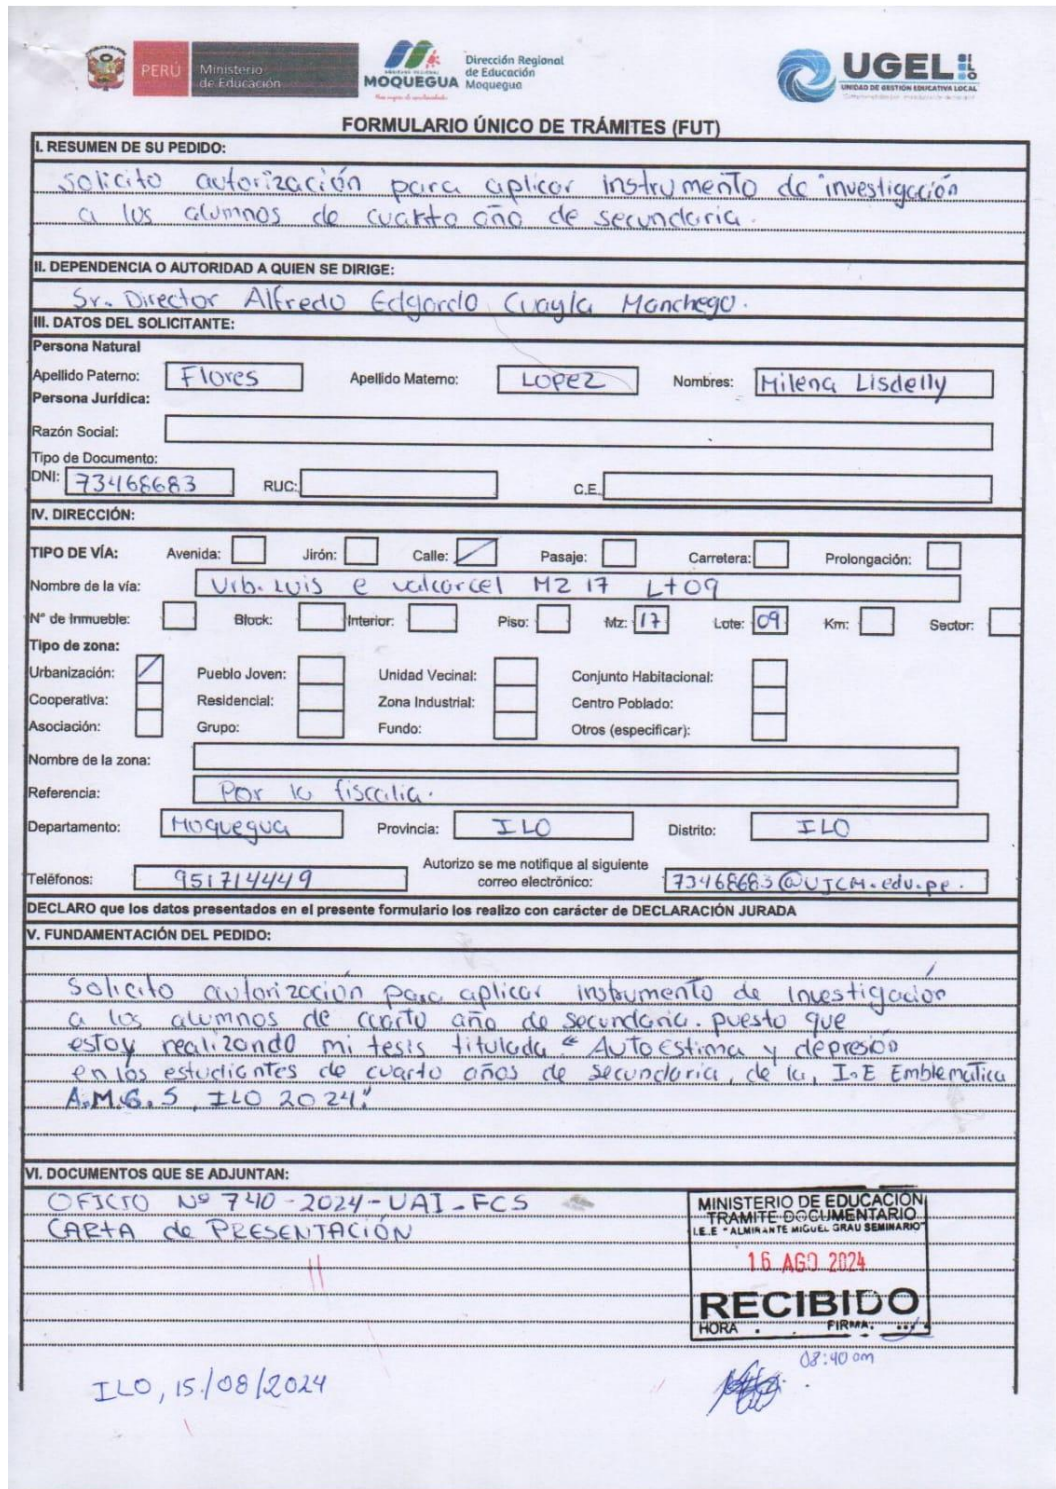 PERÚ
Ministerio
de Educación
MOQUEGUA
Dirección Regional
de Educación
Moquegua
UGEL ILO
UNIDAD DE GESTIÓN EDUCATIVA LOCAL
FORMULARIO ÚNICO DE TRÁMITES (FUT)
I. RESUMEN DE SU PEDIDO:
Solicito autorización para aplicar instrumento de investigación
a los alumnos de cuarto año de secundaria.
II. DEPENDENCIA O AUTORIDAD A QUIEN SE DIRIGE:
Sr. Director Alfredo Edgardo Cuayla Manchego.
III. DATOS DEL SOLICITANTE:
Persona Natural
Apellido Paterno: Flores Apellido Materno: LOPEZ Nombres: Milena Lisdelly
Persona Jurídica:
Razón Social:
Tipo de Documento:
DNI: 73468683 RUC: C.E.
IV. DIRECCIÓN:
TIPO DE VÍA: Avenida: Jirón: Calle: Pasaje: Carretera: Prolongación:
Nombre de la vía: Urb. Luis e valcarcel MZ 17 Lt 09
N° de Inmueble: Block: Interior: Piso: Mz: 17 Lote: 09 Km: Sector:
Tipo de zona:
Urbanización: Pueblo Joven: Unidad Vecinal: Conjunto Habitacional:
Cooperativa: Residencial: Zona Industrial: Centro Poblado:
Asociación: Grupo: Fundo: Otros (especificar):
Nombre de la zona:
Referencia: Por la fiscalia.
Departamento: Moquegua Provincia: ILO Distrito: ILO
Teléfonos: 951714449 Autorizo se me notifique al siguiente
correo electrónico: 73468683@UJCM.edu.pe.
DECLARO que los datos presentados en el presente formulario los realizo con carácter de DECLARACIÓN JURADA
V. FUNDAMENTACIÓN DEL PEDIDO:
Solicito autorización para aplicar instrumento de investigación
a los alumnos de cuarto año de secundaria. puesto que
estoy realizando mi tesis titulada "Autoestima y depresión
en los estudiantes de cuarto años de secundaria, de la, I.E Emblematica
A.M.G.S, ILO 2024."
VI. DOCUMENTOS QUE SE ADJUNTAN:
OFICIO Nº 740-2024-UAI-FCS
CARTA de PRESENTACIÓN
MINISTERIO DE EDUCACIÓN
TRAMITE DOCUMENTARIO
I.E.E "ALMIRANTE MIGUEL GRAU SEMINARIO"
16 AGO 2024
RECIBIDO
HORA FIRMA.
08:40 am
ILO, 15/08/2024